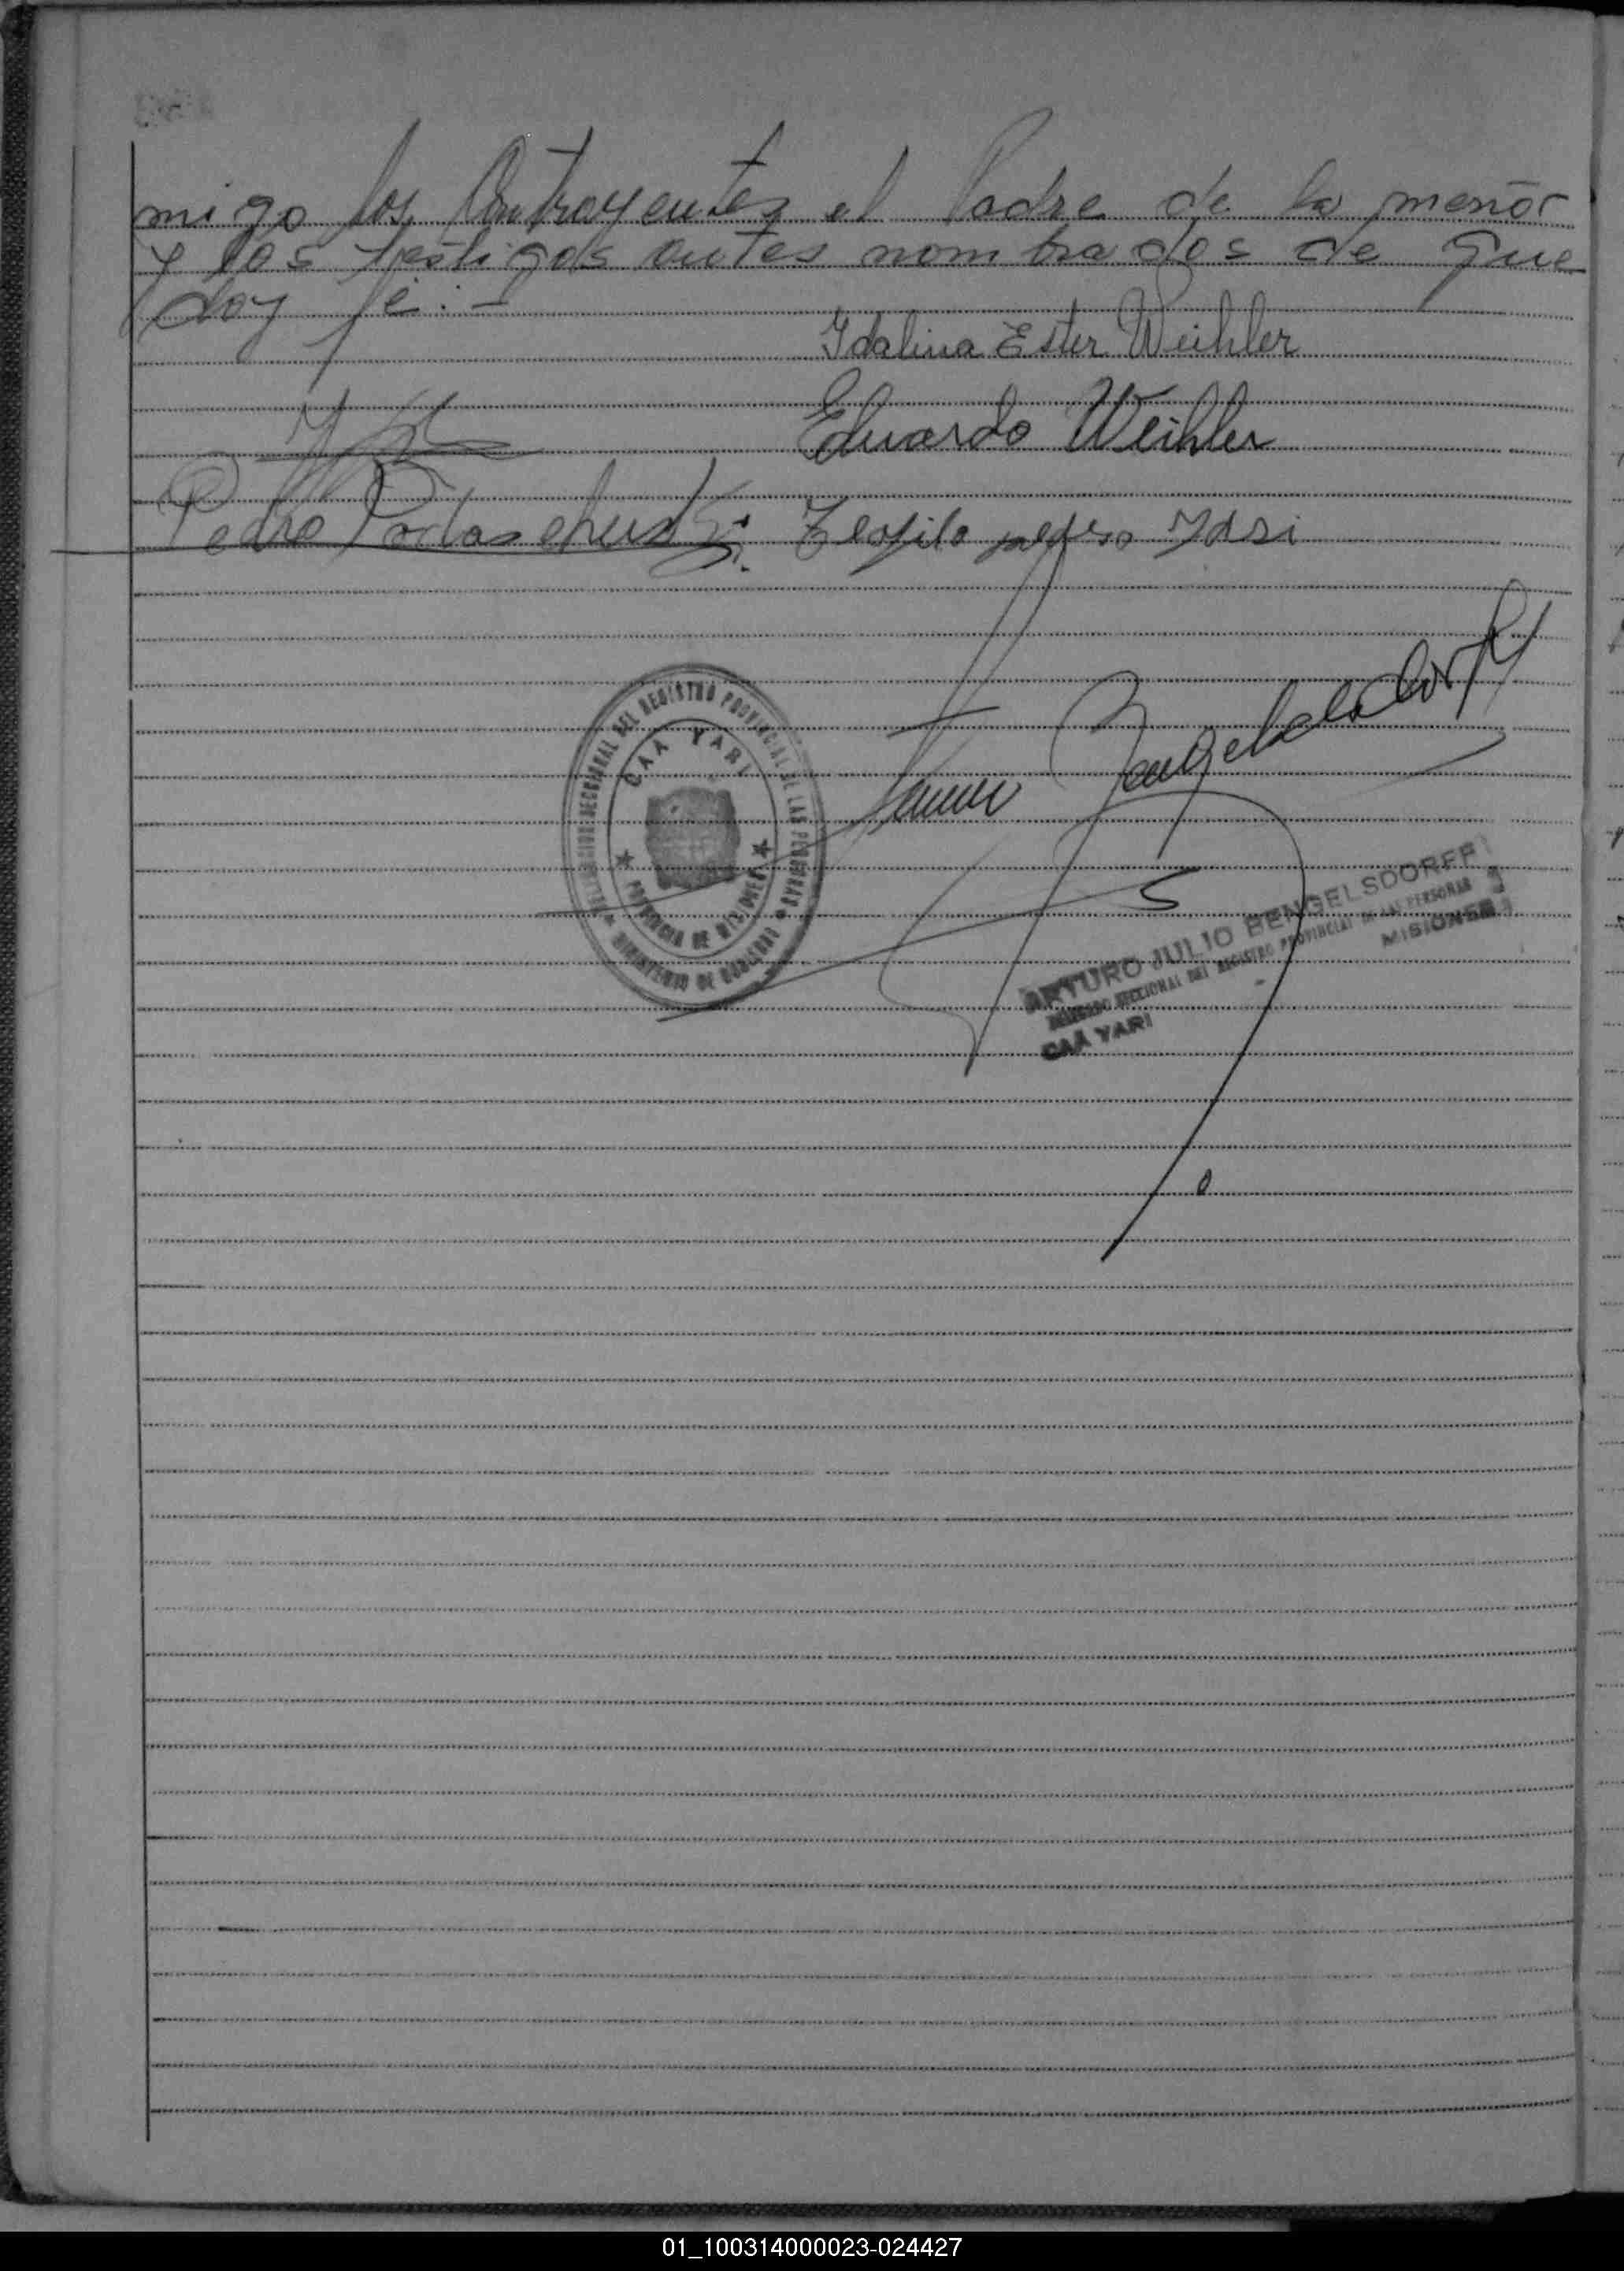 migo los Contrayentes el Padre de la menor
y los testigos antes nombrados de que
doy fé.-
Idalina Ester Weihler
Eduardo Weihler
Pedro
Teofilo
DEL REGISTRO PROVINCIAL DE LAS PERSONAS
CAA YARI
PROVINCIA DE MISIONES
MINISTERIO DE GOBIERNO
ARTURO JULIO BENGELSDORFF
SECCIONAL DEL REGISTRO PROVINCIAL DE LAS PERSONAS
CAA YARI MISIONES
01_100314000023-024427